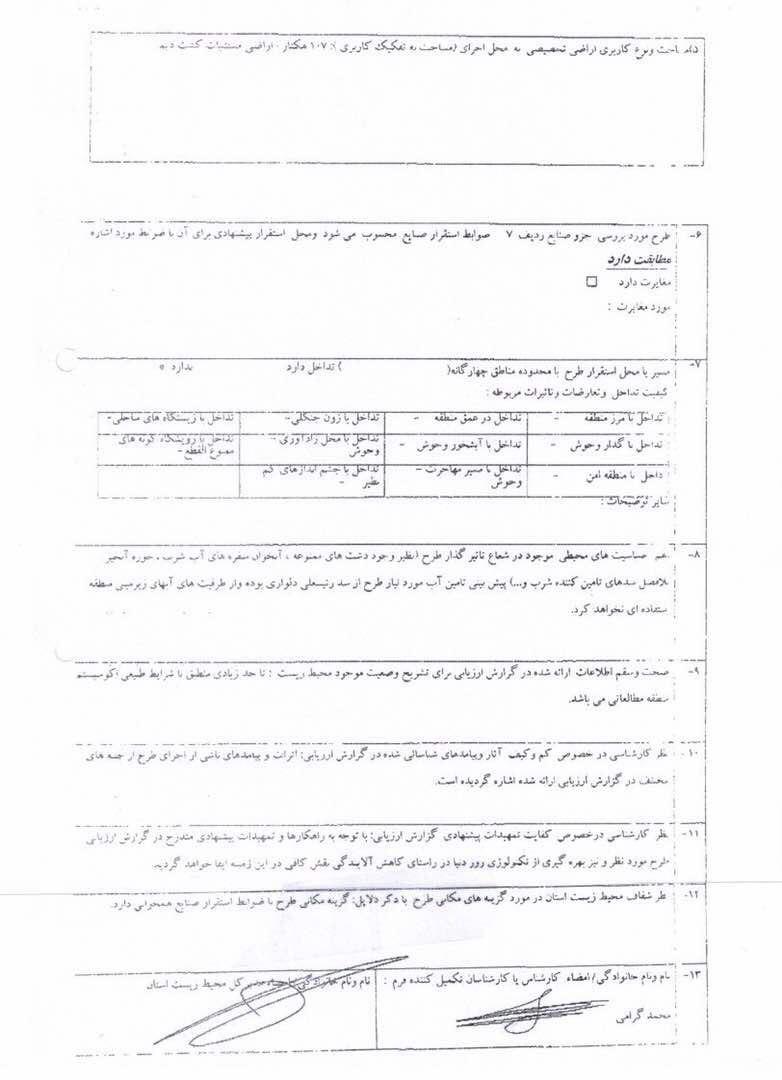 ونوع کاربری اراضی تخصیصی به محل اجرای (مساحت به تفکیک کاربری): ۱۰۷ هکتار - اراضی مستثنیات کشت دیم
۶- طرح مورد بررسی جزو صنایع ردیف ۷ ضوابط استقرار صنایع محسوب می شود ومحل استقرار پیشنهادی برای آن با ضوابط مورد اشاره
مطابقت دارد
مغایرت دارد □
مورد مغایرت :
۷- مسیر یا محل استقرار طرح با محدوده مناطق چهارگانه( ) تداخل دارد ندارد
کیفیت تداخل وتعارضات وتاثیرات مربوطه :
تداخل با مرز منطقه - تداخل در عمق منطقه - تداخل با زون جنگلی- تداخل با زیستگاه های ساحلی-
تداخل با گدار وحوش - تداخل با آبشخور وحوش - تداخل با محل زادآوری - تداخل با رویشگاه گونه های
وحوش ممنوع القطع-
داخل با منطقه امن - تداخل با مسیر مهاجرت - تداخل با چشم اندازهای کم
وحوش نظیر -
سایر توضیحات :
۸- حساسیت های محیطی موجود در شعاع تاثیر گذار طرح (نظیر وجود دشت های ممنوعه ، آبخوان سفره های آب شرب ، حوزه آبخیز
بلافصل سدهای تامین کننده شرب و...) پیش بینی تامین آب مورد نیاز طرح از سد رئیسعلی دلواری بوده واز ظرفیت های آبهای زیرزمینی منطقه
ستفاده ای نخواهد کرد.
۹- صحت وسقم اطلاعات ارائه شده در گزارش ارزیابی برای تشریح وضعیت موجود محیط زیست : تا حد زیادی منطبق با شرایط طبیعی اکوسیستم
منطقه مطالعاتی می باشد.
۱۰- نظر کارشناسی در خصوص کم وکیف آثار وپیامدهای شناسائی شده در گزارش ارزیابی: اثرات و پیامدهای ناشی از اجرای طرح از جنبه های
مختلف در گزارش ارزیابی ارائه شده اشاره گردیده است.
۱۱- نظر کارشناسی درخصوص کفایت تمهیدات پیشنهادی گزارش ارزیابی: با توجه به راهکارها و تمهیدات پیشنهادی مندرج در گزارش ارزیابی
طرح مورد نظر و نیز بهره گیری از تکنولوژی روز دنیا در راستای کاهش آلایندگی نقش کافی در این زمینه ایفا خواهد گردید.
۱۲- نظر شفاف محیط زیست استان در مورد گزینه های مکانی طرح با ذکر دلایل: گزینه مکانی طرح با ضوابط استقرار صنایع همخوانی دارد.
۱۳- نام ونام خانوادگی/ امضاء کارشناس یا کارشناسان تکمیل کننده فرم : نام ونام خانوادگی کل محیط زیست استان
محمد گرامی